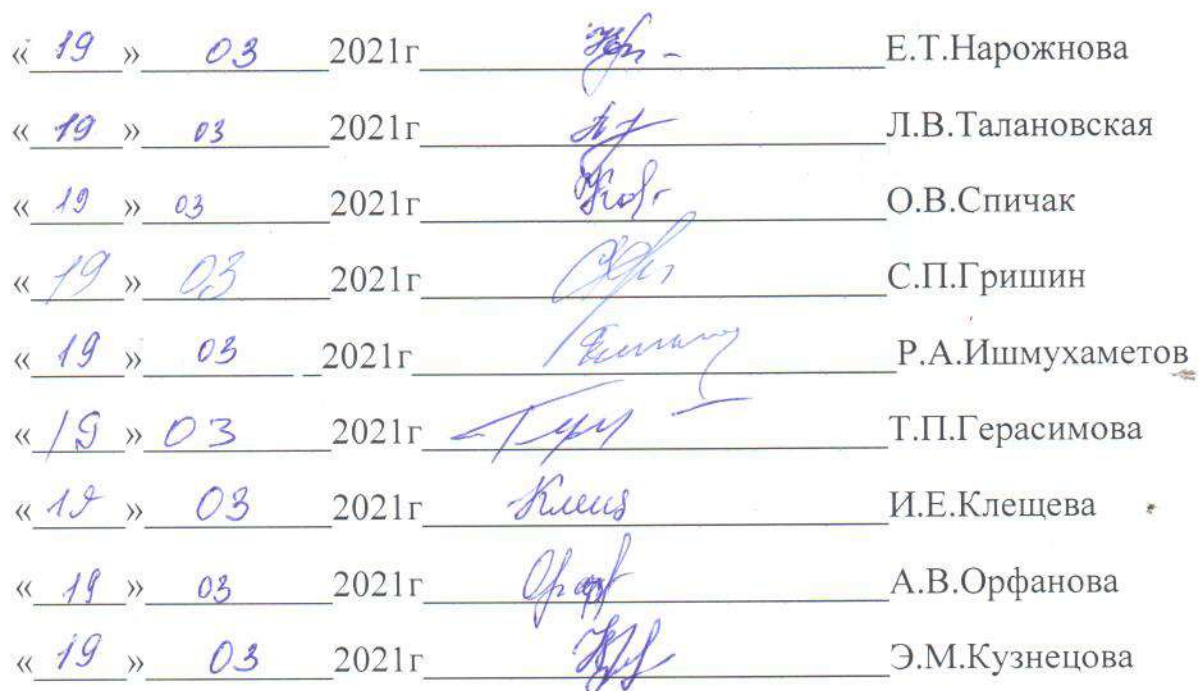 « 19 » 03 2021г Е.Т.Нарожнова
« 19 » 03 2021г Л.В.Талановская
« 19 » 03 2021г О.В.Спичак
« 19 » 03 2021г С.П.Гришин
« 19 » 03 2021г Р.А.Ишмухаметов
« 19 » 03 2021г Т.П.Герасимова
« 19 » 03 2021г Клещ И.Е.Клещева
« 19 » 03 2021г А.В.Орфанова
« 19 » 03 2021г Э.М.Кузнецова